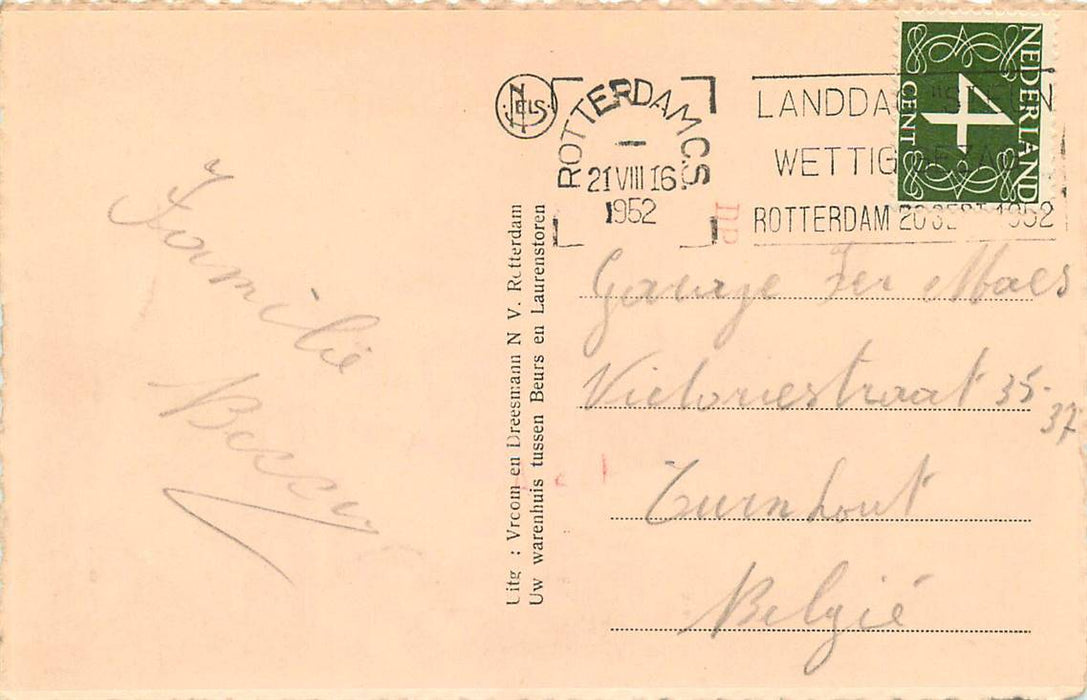 Familie
NELS
Uitg : Vroom en Dreesmann N V. Rotterdam
Uw warenhuis tussen Beurs en Laurenstoren
ROTTERDAM C.S.
21 VIII 16
1952
LANDDAG
WETTIG
ROTTERDAM 20 SEPT 1952
NEDERLAND
4
CENT
Garage Fer Maes
Victoriestraat 35-
37
Turnhout
België